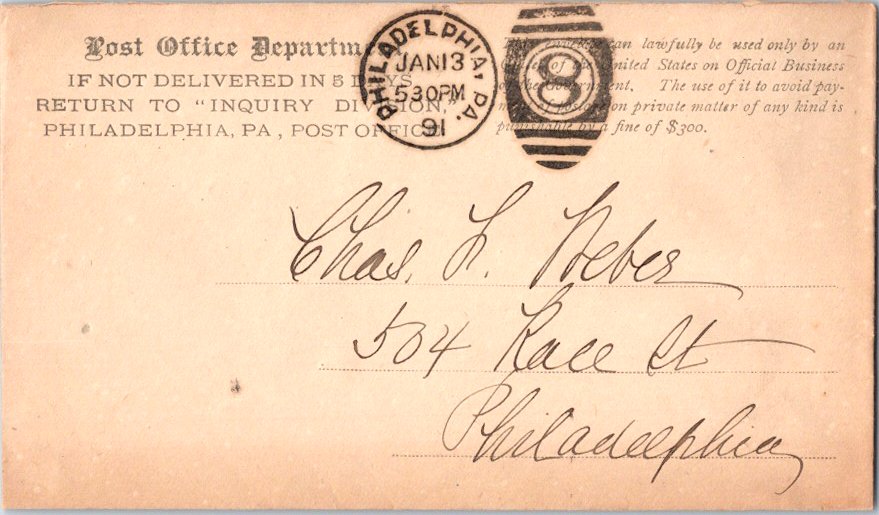 Post Office Department
IF NOT DELIVERED IN 5 DAYS
RETURN TO "INQUIRY DIVISION,"
PHILADELPHIA, PA, POST OFFICE
PHILADELPHIA, PA.
JAN 13
530 PM
91
8
envelope can lawfully be used only by an
of the United States on Official Business
of the Government. The use of it to avoid pay-
ment of postage on private matter of any kind is
punishable by a fine of $300.
Chas. Weber
504 Race St
Philadelphia